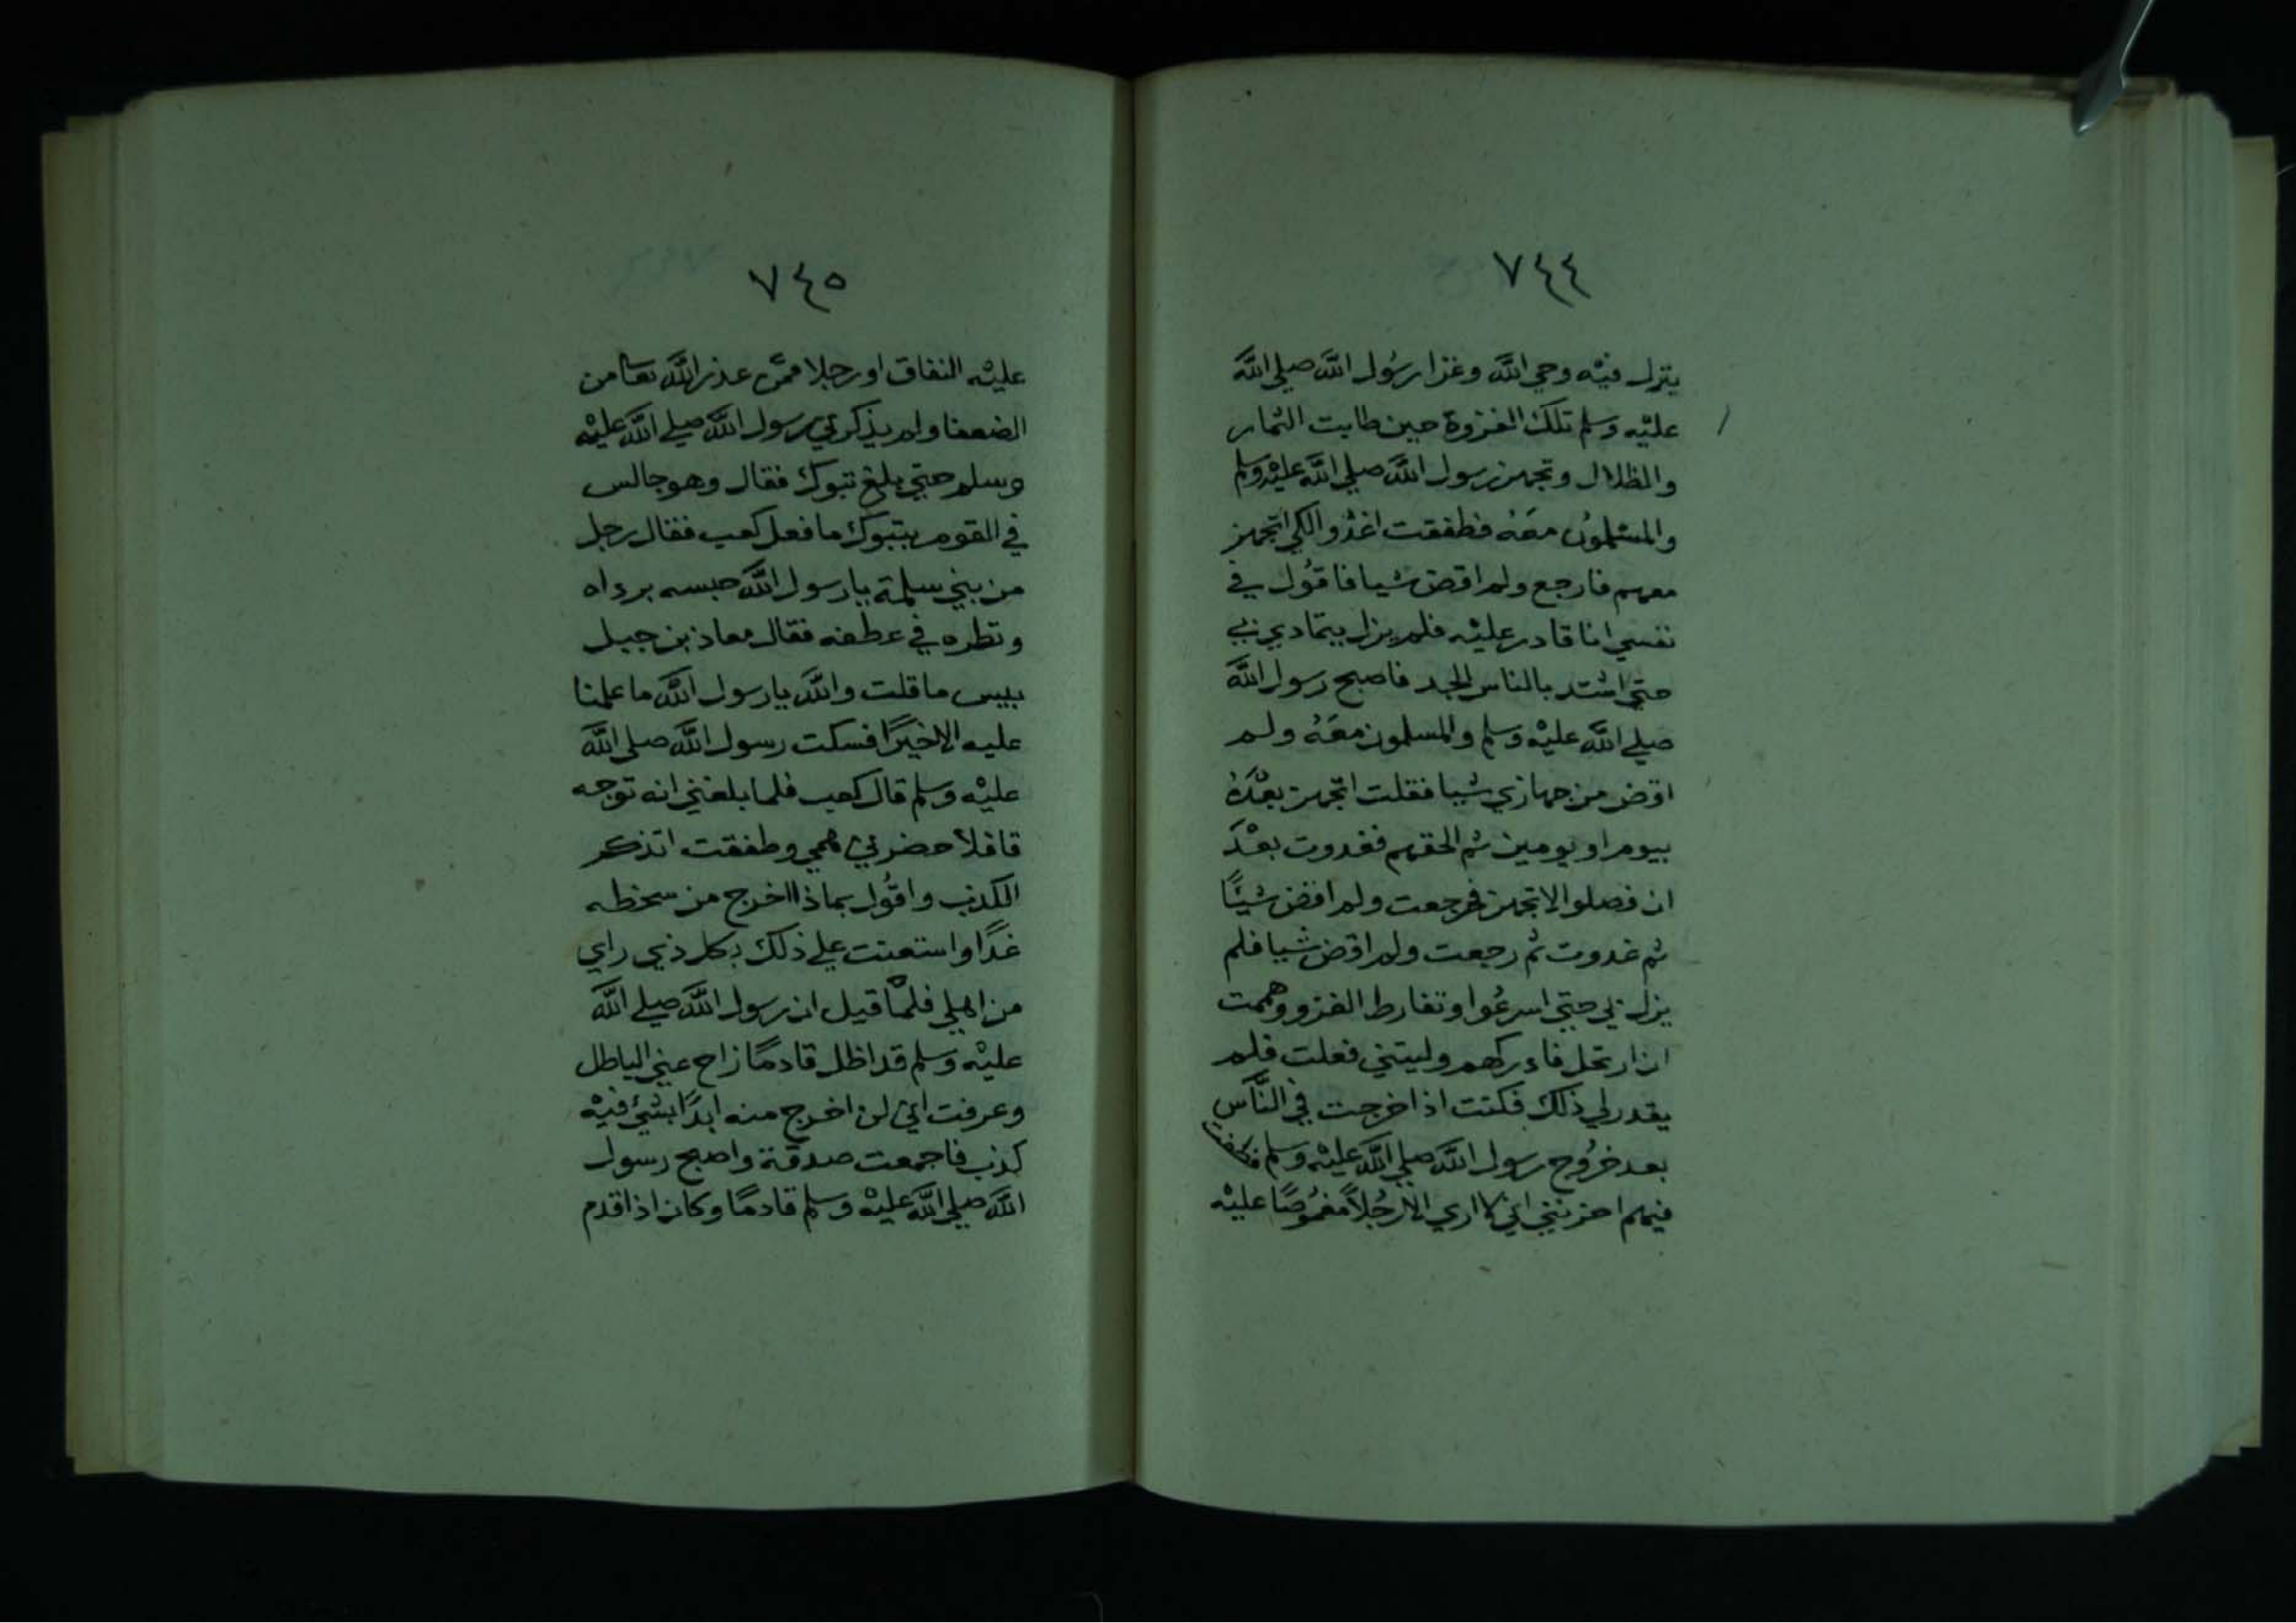 ٧٤٤
ينزل فيه وحي الله وغزا رسول الله صلي الله
عليه وسلم تلك الغزوة حين طابت الثمار
والظلال وتجهز رسول الله صلي الله عليه وسلم
والمسلمون معه فطفقت اغدوا لكي اتجهز
معهم فارجع ولم اقض شيا فاقول في
نفسي انا قادر عليه فلم يزل يتمادي بي
حتي اشتد بالناس الجد فاصبح رسول الله
صلي الله عليه وسلم والمسلمون معه ولم
اقض من جهازي شيا فقلت اتجهز بعده
بيوم او يومين ثم الحقهم فغدوت بعد
ان فصلوا لاتجهز فرجعت ولم اقض شيئا
ثم غدوت ثم رجعت ولم اقض شيا فلم
يزل بي حتي اسرعوا وتفارط الغزو وهممت
ان ارتحل فادركهم وليتني فعلت فلم
يقدر لي ذلك فكنت اذا خرجت في الناس
بعد خروج رسول الله صلي الله عليه وسلم فطفت
فيهم احزنني اني لا اري الا رجلا مغموصا عليه
٧٤٥
عليه النفاق او رجلا ممن عذر الله تعا من
الضعفا ولم يذكرني رسول الله صلي الله عليه
وسلم حتي بلغ تبوك فقال وهو جالس
في القوم بتبوك ما فعل كعب فقال رجل
من بني سلمة يا رسول الله حبسه برداه
ونظره في عطفه فقال معاذ بن جبل
بيس ما قلت والله يا رسول الله ما علمنا
عليه الا خيرا فسكت رسول الله صلي الله
عليه وسلم قال كعب فلما بلغني انه توجه
قافلا حضرني همي وطفقت اتذكر
الكذب واقول بماذا اخرج من سخطه
غدا واستعنت علي ذلك بكل ذي راي
من اهلي فلما قيل ان رسول الله صلي الله
عليه وسلم قد اظل قادما زاح عني الباطل
وعرفت اني لن اخرج منه ابدا بشئ فيه
كذب فاجمعت صدقة واصبح رسول
الله صلي الله عليه وسلم قادما وكان اذا قدم